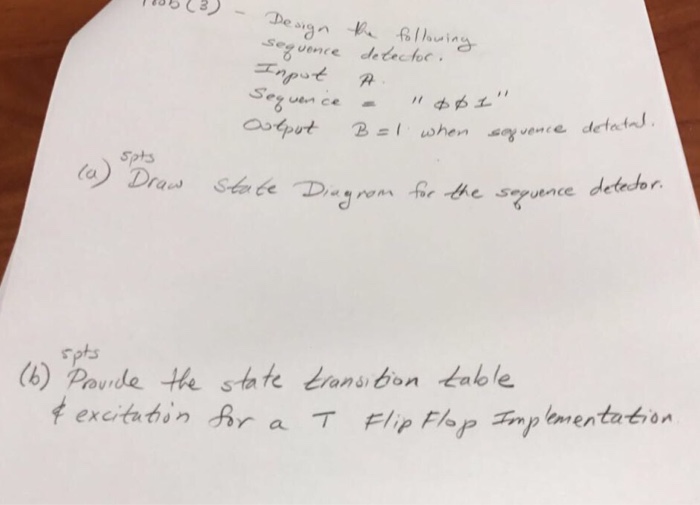 (3) - Design the following
sequence detector.
Input A.
Sequence = "φφ1"
Output B = 1 when sequence detected.
5pts
(a) Draw state Diagram for the sequence detector.
5pts
(b) Provide the state transition table
& excitation for a T Flip Flop Implementation